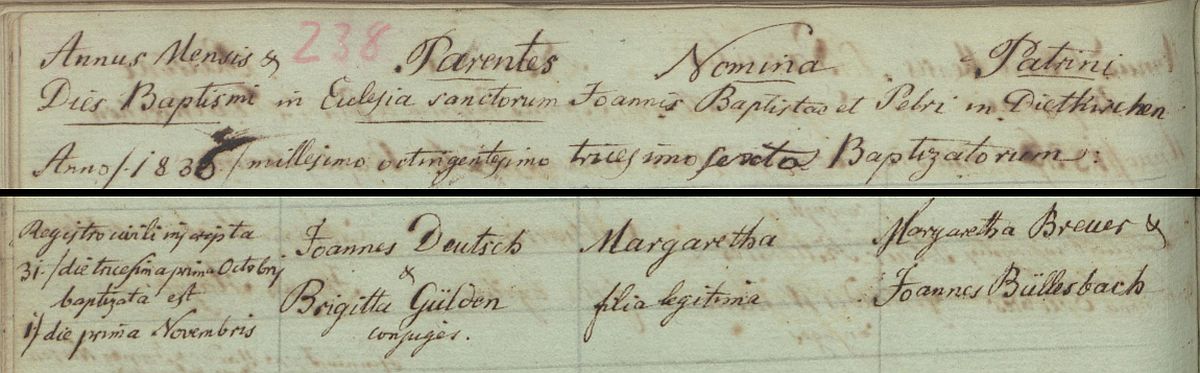 Annus Mensis & 238 Parentes Nomina Patrini
Dies Baptismi in Ecclesia sanctorum Joannis Baptistae et Petri in Dietkirchen
Anno /: 1836 :/ millesimo octingentesimo tricesimo sexto Baptizatorum :
Registro civili inscripta
31. / die tricesima prima Octobris
baptizata est
1) die prima Novembris
Joannes Deutsch
&
Brigitta Gülden
conjuges.
Margaretha
filia legitima
Margaretha Breuer &
Joannes Büllesbach